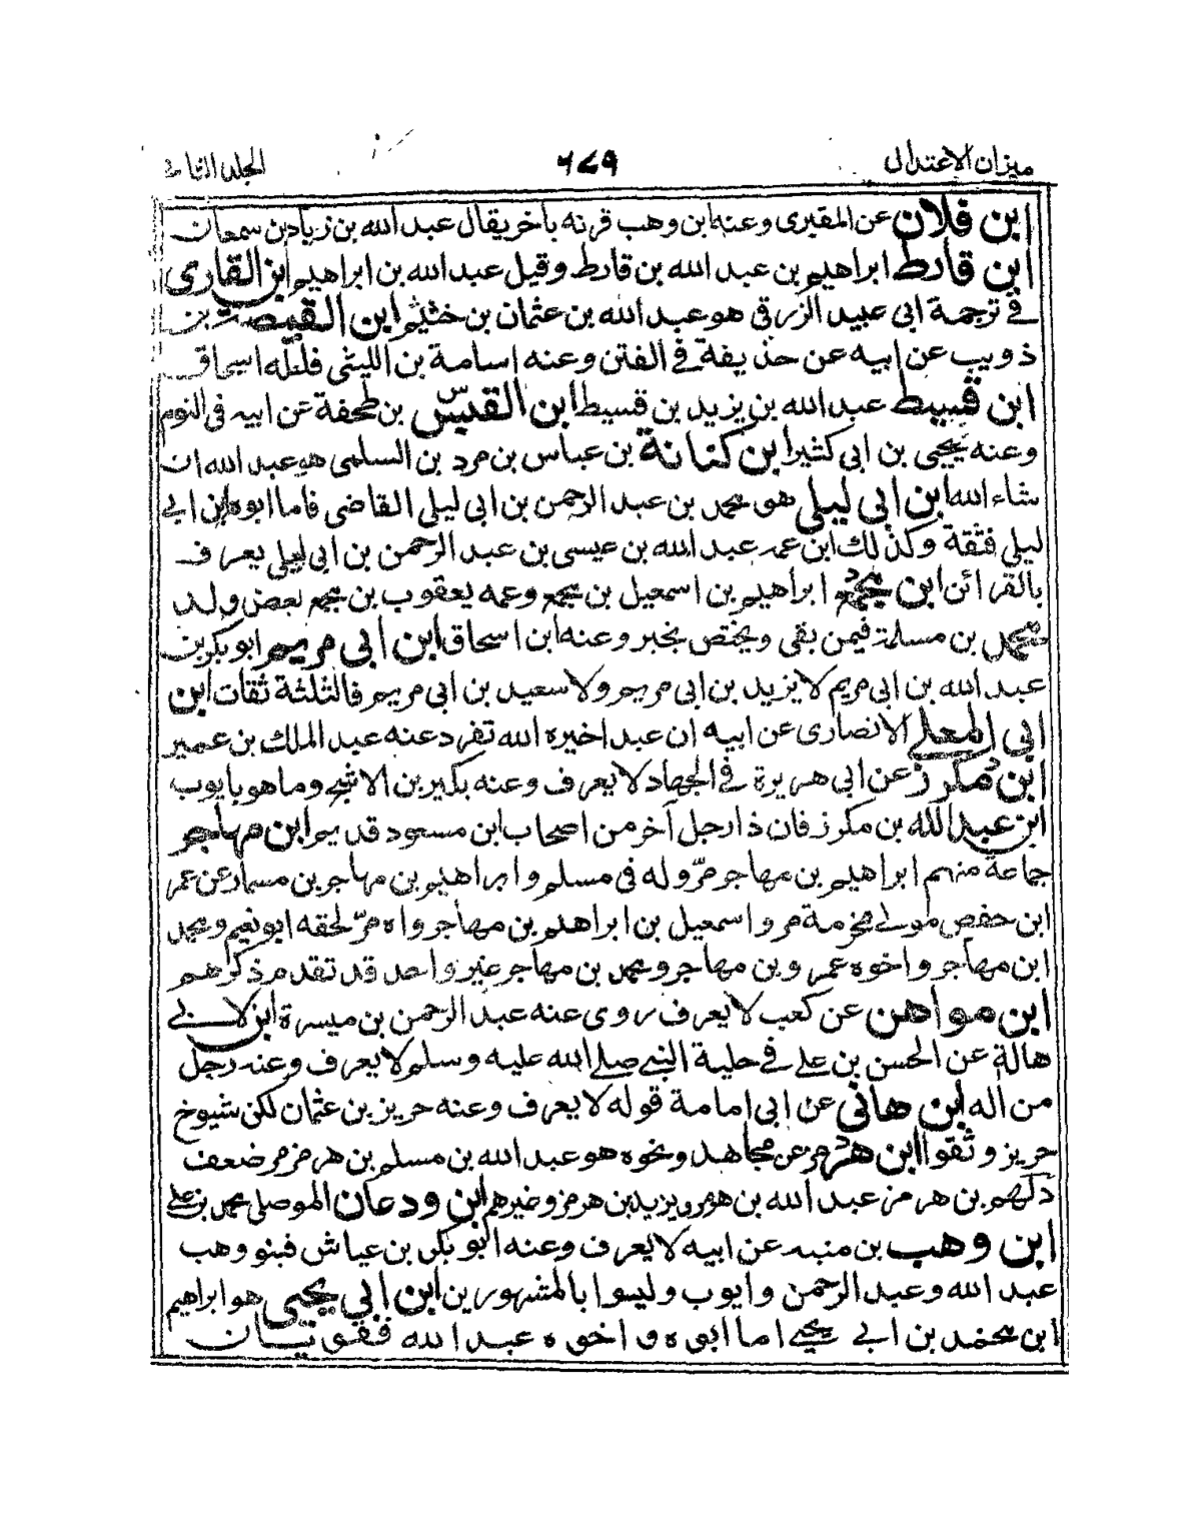 ميزان الاعتدال
٦٧٩
الجلد الثالث
ابن فلان عن المقبرى وعنه ابن وهب قرنه بآخر يقال عبد الله بن زياد بن سمعان
ابن قارظ ابراهيم بن عبد الله بن قارظ وقيل عبد الله بن ابراهيم ابن القارى
فى ترجمة ابى عبيد الزرقى هو عبد الله بن عثمان بن خثيم ابن القبيصة بن
ذويب عن ابيه عن حذيفة فى الفتن وعنه اسامة بن الليثى فلعله اسحاق
ابن قسيط عبد الله بن يزيد بن قسيط ابن القيسى بن طحفة عن ابيه فى النوم
وعنه يحيى بن ابى كثير ابن كنانة بن عباس بن مرد بن السلمى هو عبد الله ان
شاء الله ابن ابى ليلى هو محمد بن عبد الرحمن بن ابى ليلى القاضى فاما ابوه ابن ابى
ليلى فثقة وكذلك ابن عمه عبد الله بن عيسى بن عبد الرحمن بن ابى ليلى يعرف
بالقرائن ابن مجمع ابراهيم بن اسمعيل بن مجمع وعمه يعقوب بن مجمع بعض ولد
محمد بن مسلمة فيمن بقى ويختص بخبر وعنه ابن اسحاق ابن ابى مريم ابو بكر بن
عبد الله بن ابى مريم لا يزيد بن ابى مريم ولا سعيد بن ابى مريم فالثلثة ثقات ابن
ابى المعلى الانصارى عن ابيه ان عبدا خيره الله تفرد عنه عبد الملك بن عمير
ابن مكرز عن ابى هريرة فى الجهاد لا يعرف وعنه بكير بن الاشج وما هو بايوب
ابن عبد الله بن مكرز فان ذا رجل آخر من اصحاب ابن مسعود قديم ابن مهاجر
جماعة منهم ابراهيم بن مهاجر مرّ وله فى مسلم وابراهيم بن مهاجر بن مسمار عن عمر
ابن حفص مولى مخرمة مر واسمعيل بن ابراهيم بن مهاجر واه مرّ لحقه ابو نعيم ومحمد
ابن مهاجر واخوه عمرو بن مهاجر ومحمد بن مهاجر غير واحد قد تقدم ذكرهم
ابن مواهن عن كعب لا يعرف روى عنه عبد الرحمن بن ميسرة ابن لابى
هالة عن الحسن بن على فى حلية النبى صلى الله عليه وسلم لا يعرف وعنه رجل
من اله ابن هانى عن ابى امامة قوله لا يعرف وعنه حريز بن عثمان لكن شيوخ
حريز وثقوا ابن هرمز عن مجاهد ونحوه هو عبد الله بن مسلم بن هرمز مر ضعف
ولهم بن هرمز عبد الله بن هرمز ويزيد بن هرمز وغيرهم ابن ودعان الموصلى محمد بن على
ابن وهب بن منبه عن ابيه لا يعرف وعنه ابو بكر بن عياش فبنو وهب
عبد الله وعبد الرحمن وايوب وليسوا بالمشهورين ابن ابى يحيى هو ابراهيم
ابن محمد بن ابى يحيى اما ابوه واخوه عبد الله فقويان